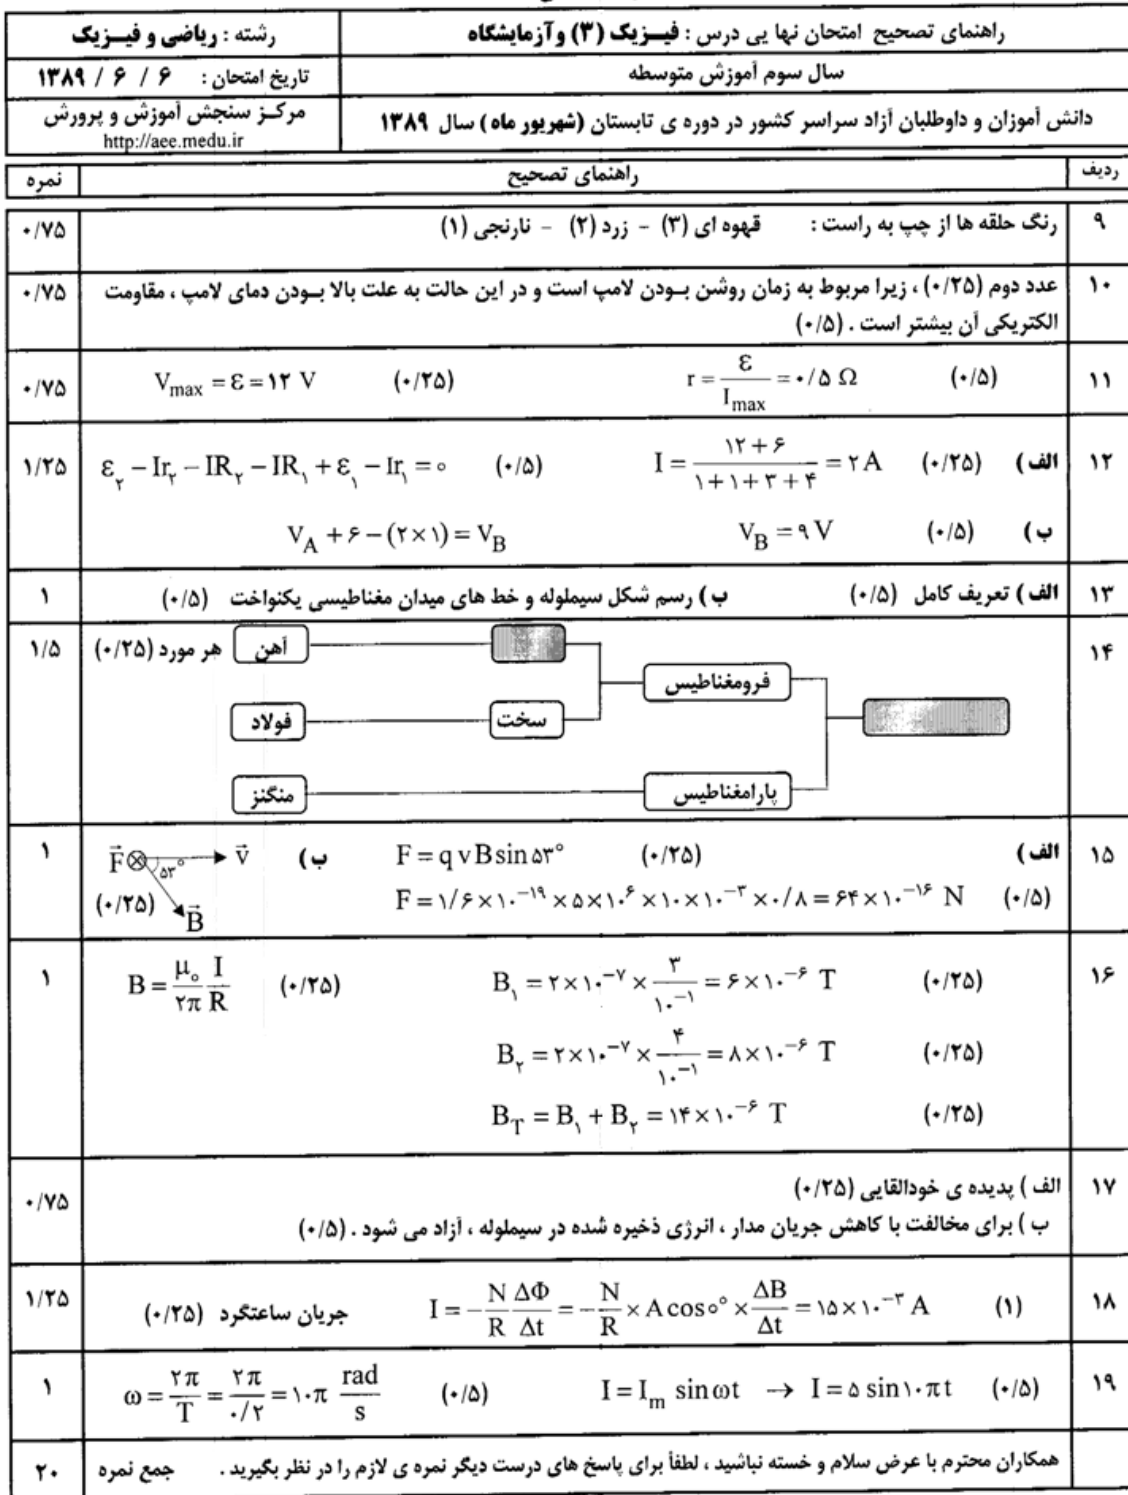 راهنمای تصحیح امتحان نهایی درس : فیـزیک (۳) و آزمایشگاه
رشته : ریاضی و فیـزیک
سال سوم آموزش متوسطه
تاریخ امتحان : ۶ / ۶ / ۱۳۸۹
دانش آموزان و داوطلبان آزاد سراسر کشور در دوره ی تابستان (شهریور ماه) سال ۱۳۸۹
مرکـز سنجش آموزش و پرورش
http://aee.medu.ir
ردیف راهنمای تصحیح نمره
۹ رنگ حلقه ها از چپ به راست : قهوه ای (۳) - زرد (۲) - نارنجی (۱) ۰/۷۵
۱۰ عدد دوم (۰/۲۵) ، زیرا مربوط به زمان روشن بـودن لامپ است و در این حالت به علت بالا بـودن دمای لامپ ، مقاومت ۰/۷۵
الکتریکی آن بیشتر است . (۰/۵)
۱۱ r = ε / I_max = ۰/۵ Ω (۰/۵) V_max = ε = ۱۲ V (۰/۲۵) ۰/۷۵
۱۲ الف ) I = (۱۲ + ۶) / (۱ + ۱ + ۳ + ۴) = ۲ A (۰/۲۵) ε_۲ − Ir_۲ − IR_۲ − IR_۱ + ε_۱ − Ir_۱ = ۰ (۰/۵) ۱/۲۵
ب ) V_A + ۶ − (۲ × ۱) = V_B V_B = ۹ V (۰/۵)
۱۳ الف ) تعریف کامل (۰/۵) ب ) رسم شکل سیملوله و خط های میدان مغناطیسی یکنواخت (۰/۵) ۱
۱۴ هر مورد (۰/۲۵) ۱/۵
آهن
فرومغناطیس
سخت
فولاد
پارامغناطیس
منگنز
۱۵ الف ) F = q v B sin ۵۳° (۰/۲۵) ب ) F⃗ ⊗ v⃗ ۵۳° B⃗ (۰/۲۵) ۱
F = ۱/۶ × ۱۰^−۱۹ × ۵ × ۱۰^۶ × ۱۰ × ۱۰^−۳ × ۰/۸ = ۶۴ × ۱۰^−۱۶ N (۰/۵)
۱۶ B = μ_۰ / ۲π I / R (۰/۲۵) B_۱ = ۲ × ۱۰^−۷ × ۳ / ۱۰^−۱ = ۶ × ۱۰^−۶ T (۰/۲۵) ۱
B_۲ = ۲ × ۱۰^−۷ × ۴ / ۱۰^−۱ = ۸ × ۱۰^−۶ T (۰/۲۵)
B_T = B_۱ + B_۲ = ۱۴ × ۱۰^−۶ T (۰/۲۵)
۱۷ الف ) پدیده ی خودالقایی (۰/۲۵) ۰/۷۵
ب ) برای مخالفت با کاهش جریان مدار ، انرژی ذخیره شده در سیملوله ، آزاد می شود . (۰/۵)
۱۸ I = − N/R ΔΦ/Δt = − N/R × A cos ۰° × ΔB/Δt = ۱۵ × ۱۰^−۳ A (۱) جریان ساعتگرد (۰/۲۵) ۱/۲۵
۱۹ ω = ۲π/T = ۲π/۰/۲ = ۱۰π rad/s (۰/۵) I = I_m sin ωt → I = ۵ sin ۱۰πt (۰/۵) ۱
همکاران محترم با عرض سلام و خسته نباشید ، لطفاً برای پاسخ های درست دیگر نمره ی لازم را در نظر بگیرید . جمع نمره ۲۰